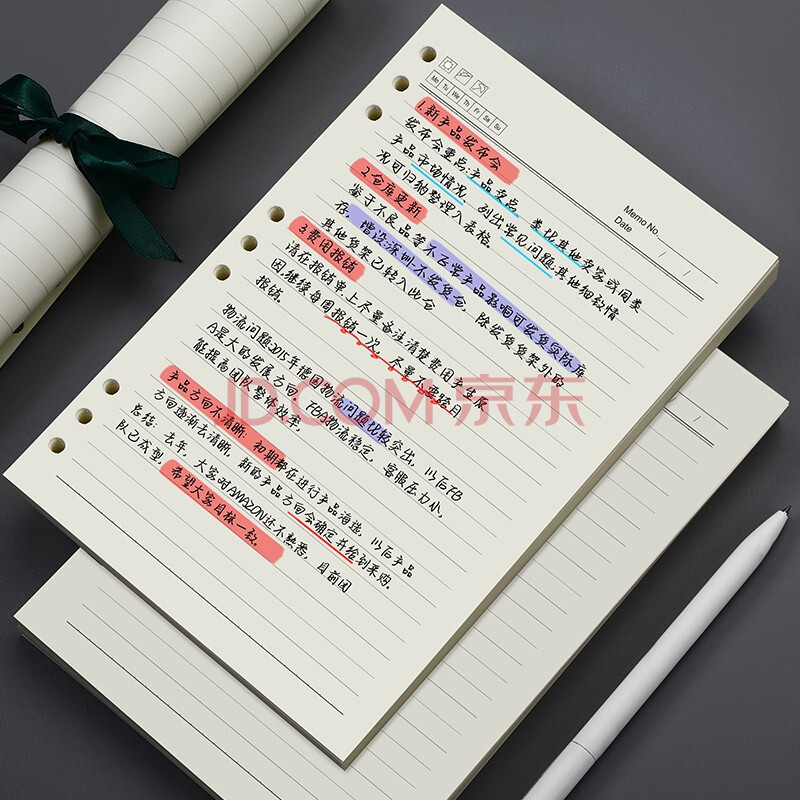 Mo Tu We Th Fr Sa Su
Memo No.
Date / /
1.新产品发布会
发布会重点:产品卖点、类找其他卖家或同类
产品市场情况,列出常见问题.其他细致情
况可归纳整理入表格。
2.仓库更新
鉴于不良品等不正常产品影响可发货实际库
存。增设:深圳-不发货仓,除发货货架外的
其他货架已转入此仓
3.费用报销
请在报销单上尽量备注清楚费用产生原
因.继续每周报销一次,尽量不要跨月
报销。
物流问题:2015年德国物流问题比较突出,以后FB
A是大的发展方向,FB的物流稳定,客服压力小,
能提高团队整体效率,
产品方向不清晰:初期都在进行产品海选,以后产品
方向逐渐去清晰,新的产品方向会确定并给到采购。
总结:去年,大家对AMAZON还不熟悉,目前团
队已成型,希望大家目标一致。
JD.COM 京东